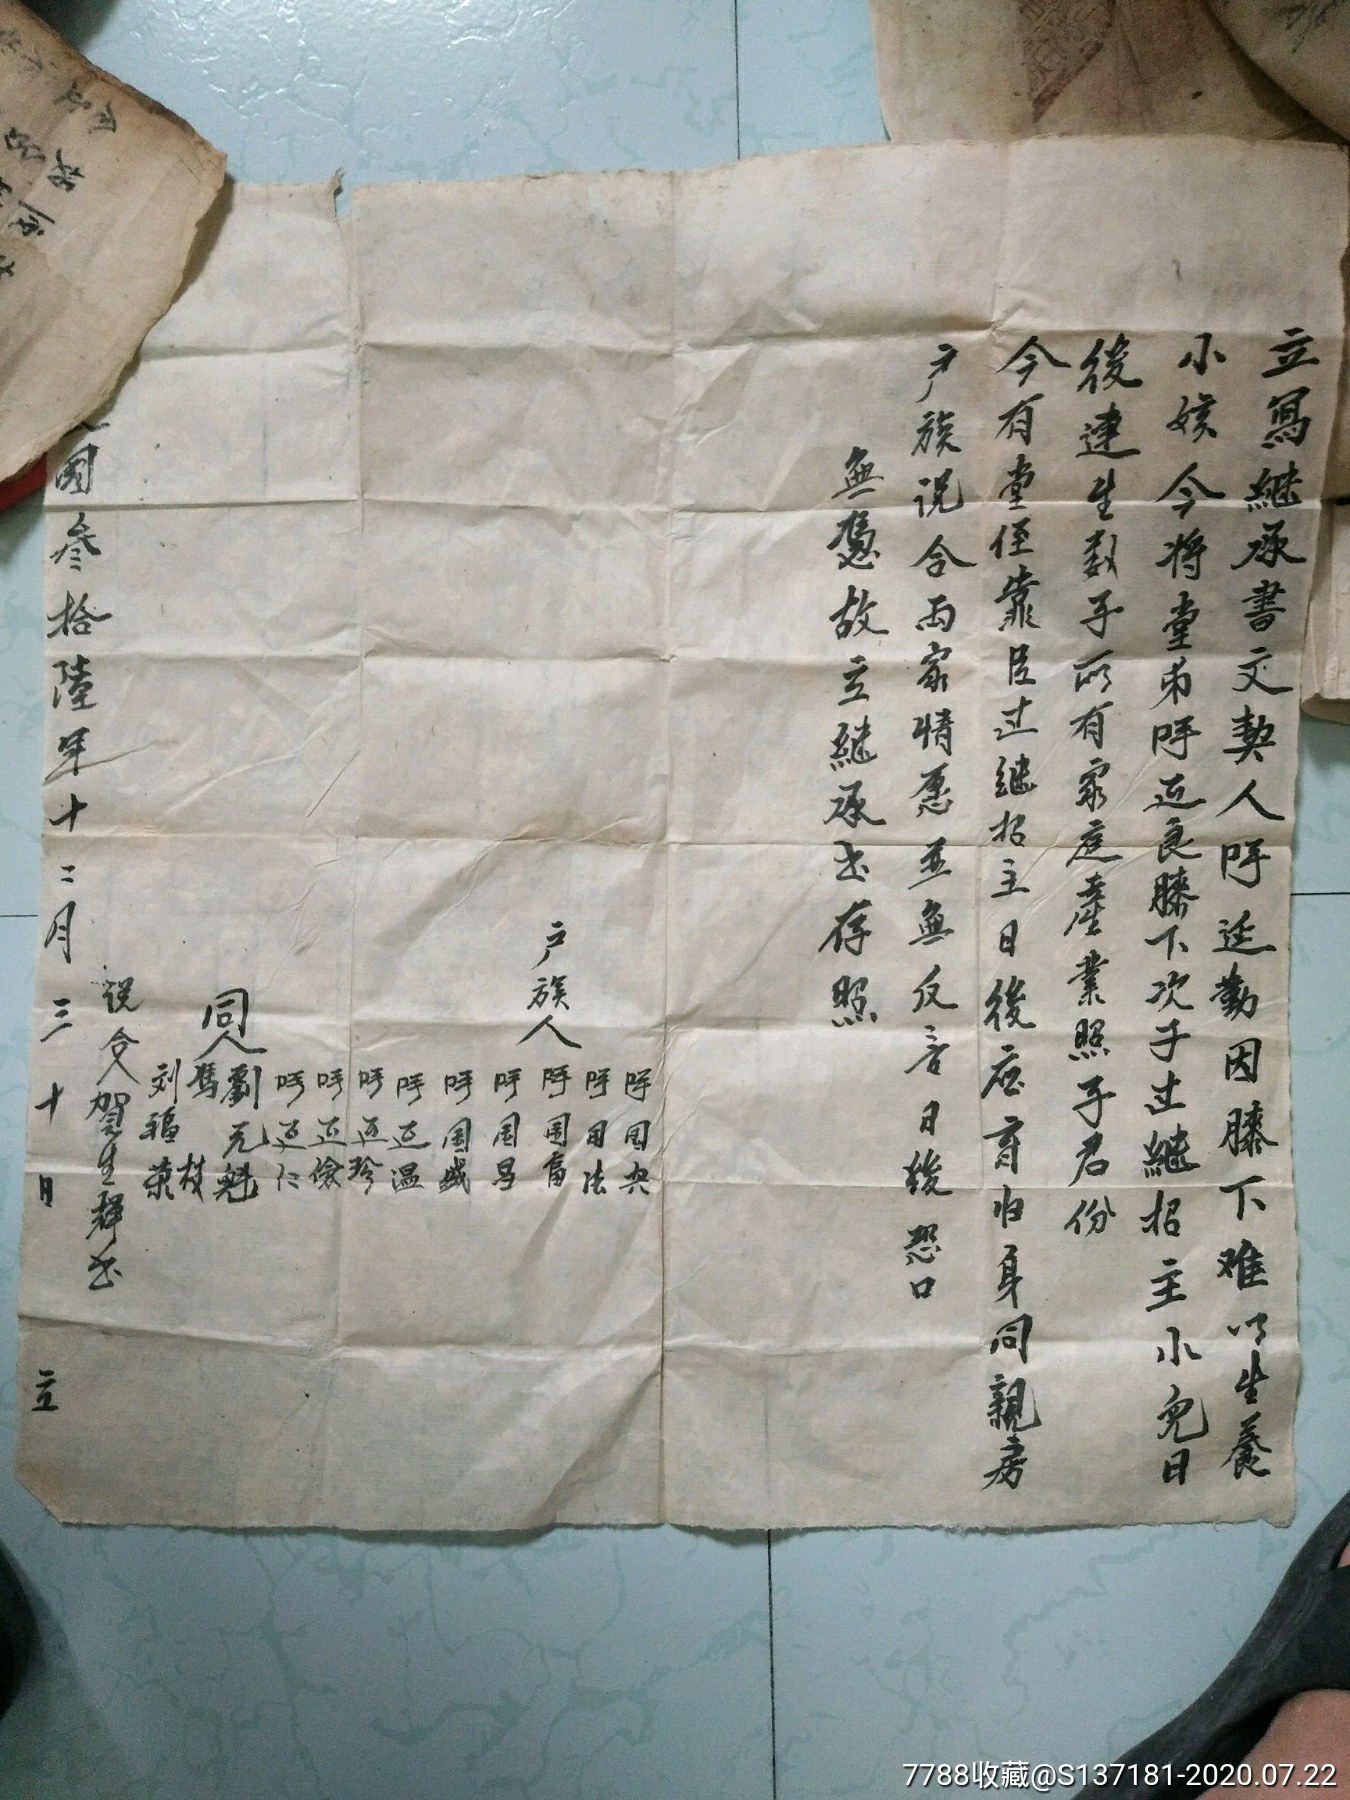 立寫継承書文契人呼廷勤因膝下难以生養
小娃今将堂弟呼廷良膝下次子过継招主小兒日
後連生数子所有家庭產業照子君份
今有堂侄靠臣过継招主日後应育归身同親房
户族说合両家情愿並無反言日後恐口
無憑故立継承书存照
户族人
呼国央
呼国法
呼国富
呼国昌
呼国盛
呼廷温
呼廷珍
呼廷儉
呼廷仁
同人
劉元魁
馬枝
刘福荣
説合人賀生輝书
國叁拾陸年十二月三十日 立
7788收藏@S137181-2020.07.22